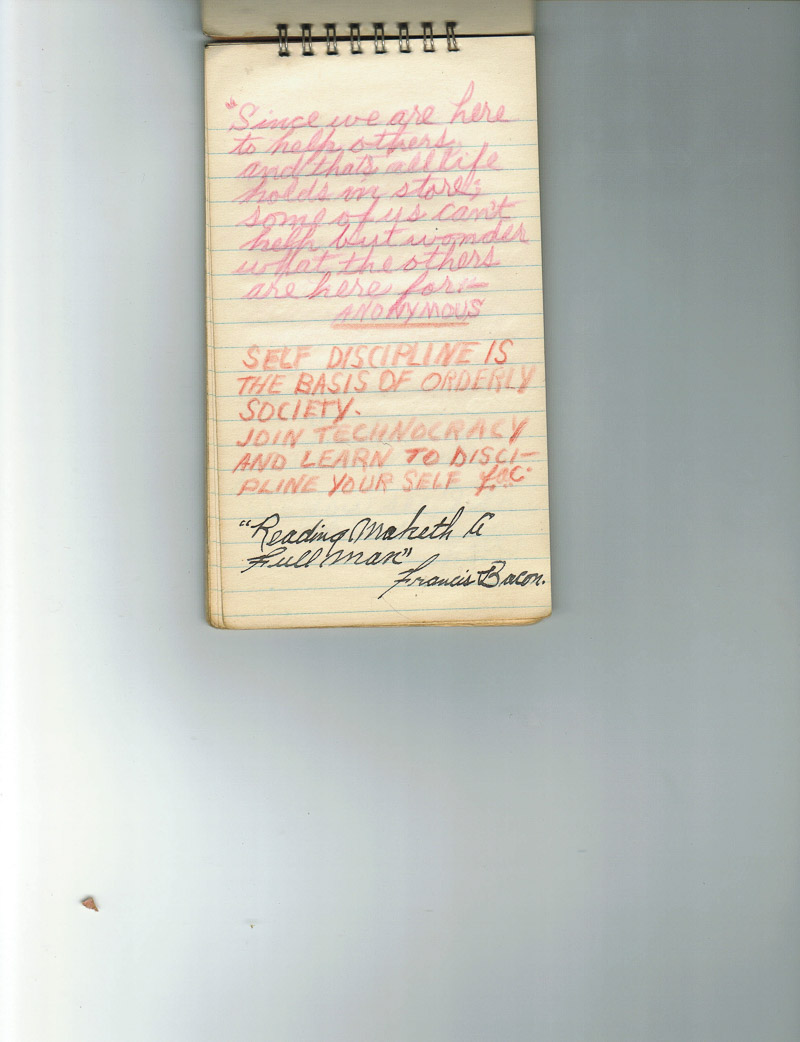 "Since we are here
to help others,
and thats all life
holds in store;
some of us can't
help but wonder
what the others
are here for:—
ANONYMOUS
SELF DISCIPLINE IS
THE BASIS OF ORDERLY
SOCIETY.
JOIN TECHNOCRACY
AND LEARN TO DISCI-
PLINE YOUR SELF
"Reading Maketh A
Full Man"
Francis Bacon.